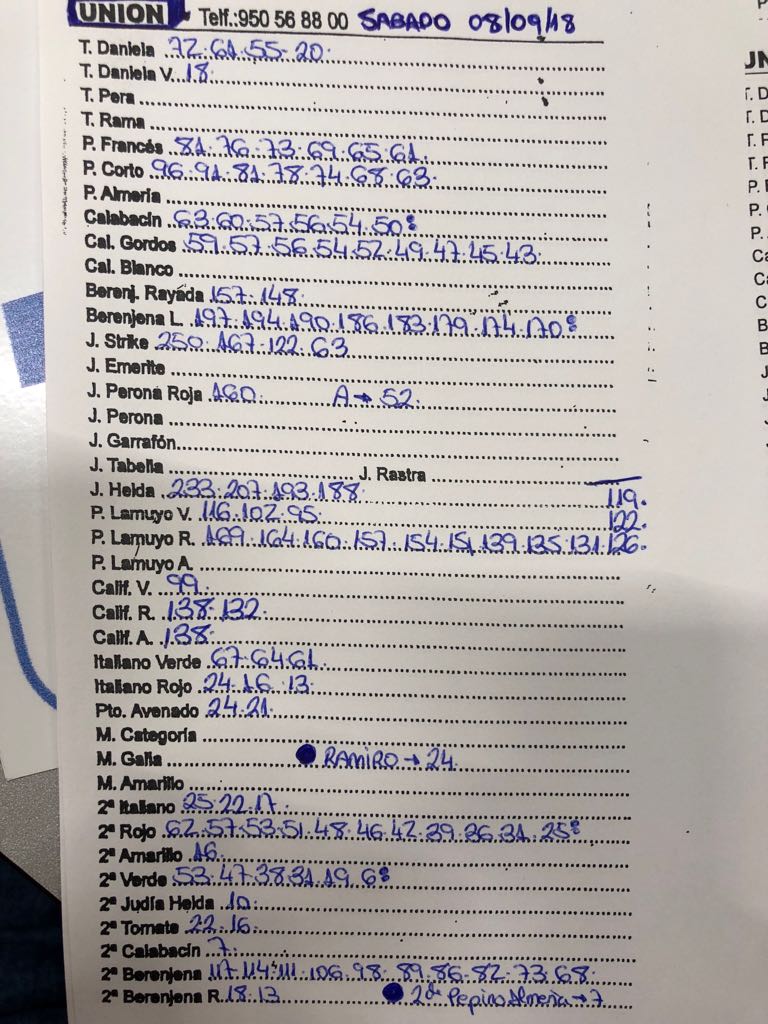 UNION Telf.:950 56 88 00 SABADO 08/09/18
T. Daniela 72.61.55.20.
T. Daniela V. 18.
T. Pera
T. Rama
P. Francés 81.76.73.69.65.61.
P. Corto 96.91.81.78.74.68.63.
P. Almeria
Calabacin 63.60.57.56.54.50:
Cal. Gordos 59.57.56.54.52.49.47.45.43.
Cal. Blanco
Berenj. Rayada 157.148.
Berenjena L. 197.194.190.186.183.179.174.170:
J. Strike 250.167.122.63
J. Emerite
J. Perona Roja 160. A→52.
J. Perona
J. Garrafón
J. Tabella J. Rastra
J. Helda 233.207.193.188. 119.
P. Lamuyo V. 116.102.95. 122.
P. Lamuyo R. 169.164.160.157.154.151.139.135.131.126.
P. Lamuyo A.
Calif. V. 99.
Calif. R. 138.132.
Calif. A. 138.
Italiano Verde 67.64.61.
Italiano Rojo 24.16.13.
Pto. Avenado 24.21.
M. Categoria
M. Galia RAMIRO→24.
M. Amarillo
2ª Italiano 25.22.17.
2ª Rojo 62.57.53.51.48.46.42.39.36.31.25:
2ª Amarillo 16.
2ª Verde 53.47.38.31.19.6:
2ª Judía Helda 10.
2ª Tomate 22.16.
2ª Calabacin 7.
2ª Berenjena 117.114.111.106.98.89.86.82.73.68.
2ª Berenjena R. 18.13. 2ª Pepino Almeria→7